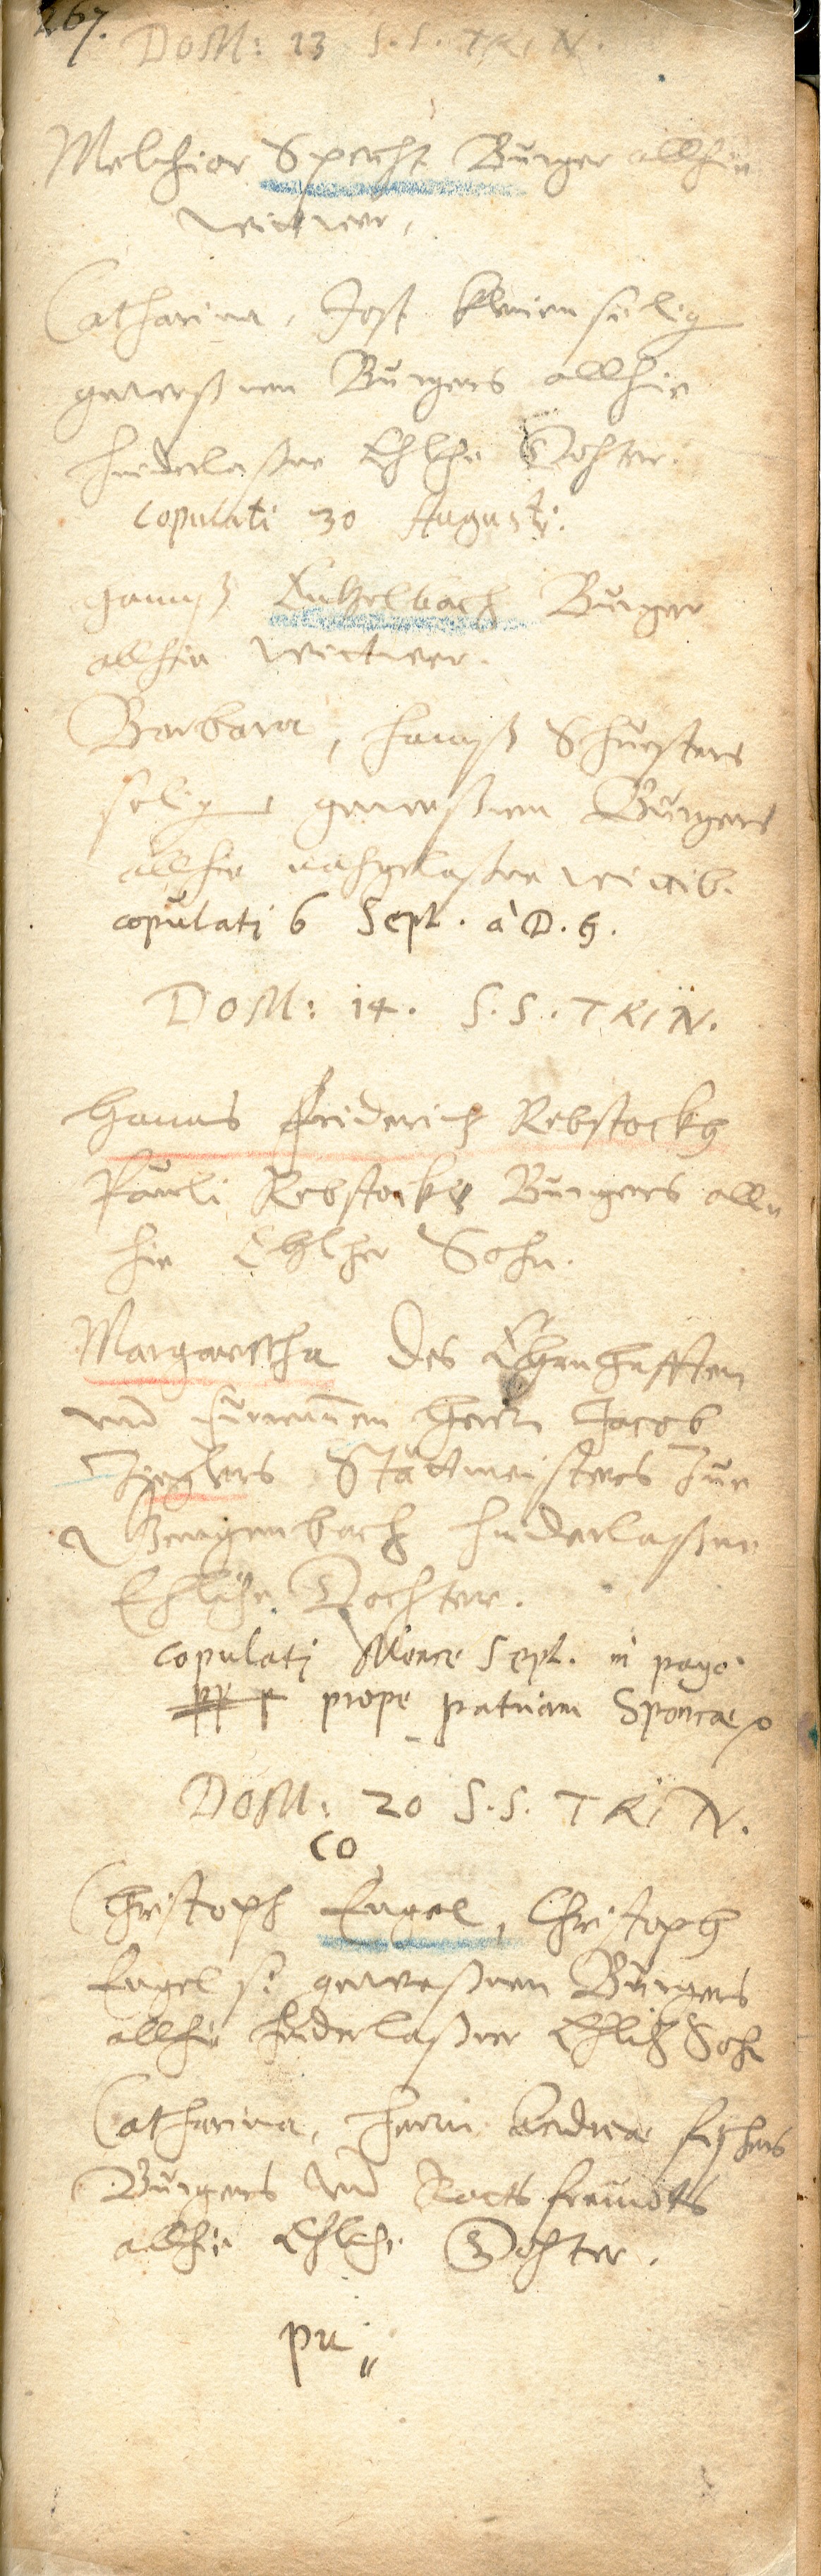 267.
DOM: 13 S.S. TRIN.
Melchior Specht Burger allhie
wittwer,
Catharina, Jost kleinen selig
gewesßnen Burgers allhie
hinderlaßne Ehlche Dohter.
copulati 30 Augusti.
Hannß Burger
allhie wittwer.
Barbara, Hannß Schusters
selig gewesßnen Burgers
allhie nachgelaßne wittib.
copulati 6 Sept. à D. 5.
DOM: 14. S.S. TRIN.
Hanns Friderich Rebstockh
Pauli Rebstockhs Burgers all
hie Ehlcher Sohn.
Margarettha des Ehrnhafften
und fürnemmen Herrn Jacob
Zieglers Stättmeisters Zue
Gengenbach hinderlaßne
Ehliche Dochter.
copulati Mense Sept. in pago
prope patriam Sponsae
DOM: 20 S.S. TRIN.
co
Christoph Engel, Christoph
Engel s: gewesßnen Burgers
allhie hinderlaßner Ehlich Sohn
Catharina, Herrn Andreae fischers
Burgers und Rats freundts
allhie Ehlche Dohter.